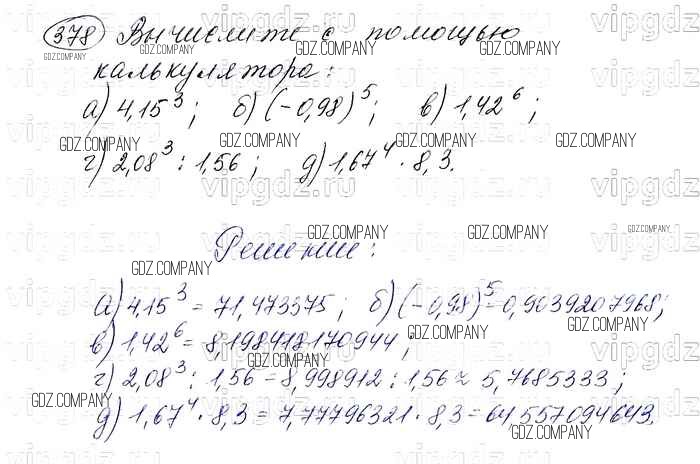 378 Вычислите с помощью
калькулятора:
а) 4,15³; б) (-0,98)⁵; в) 1,42⁶;
г) 2,08³ : 1,56; д) 1,67⁴ · 8,3.
Решение:
а) 4,15³ = 71,473375; б) (-0,98)⁵ = -0,9039207968;
в) 1,42⁶ = 8,198418170944;
г) 2,08³ : 1,56 = 8,998912 : 1,56 ≈ 5,7685333;
д) 1,67⁴ · 8,3 = 7,77796321 · 8,3 = 64,557094643.